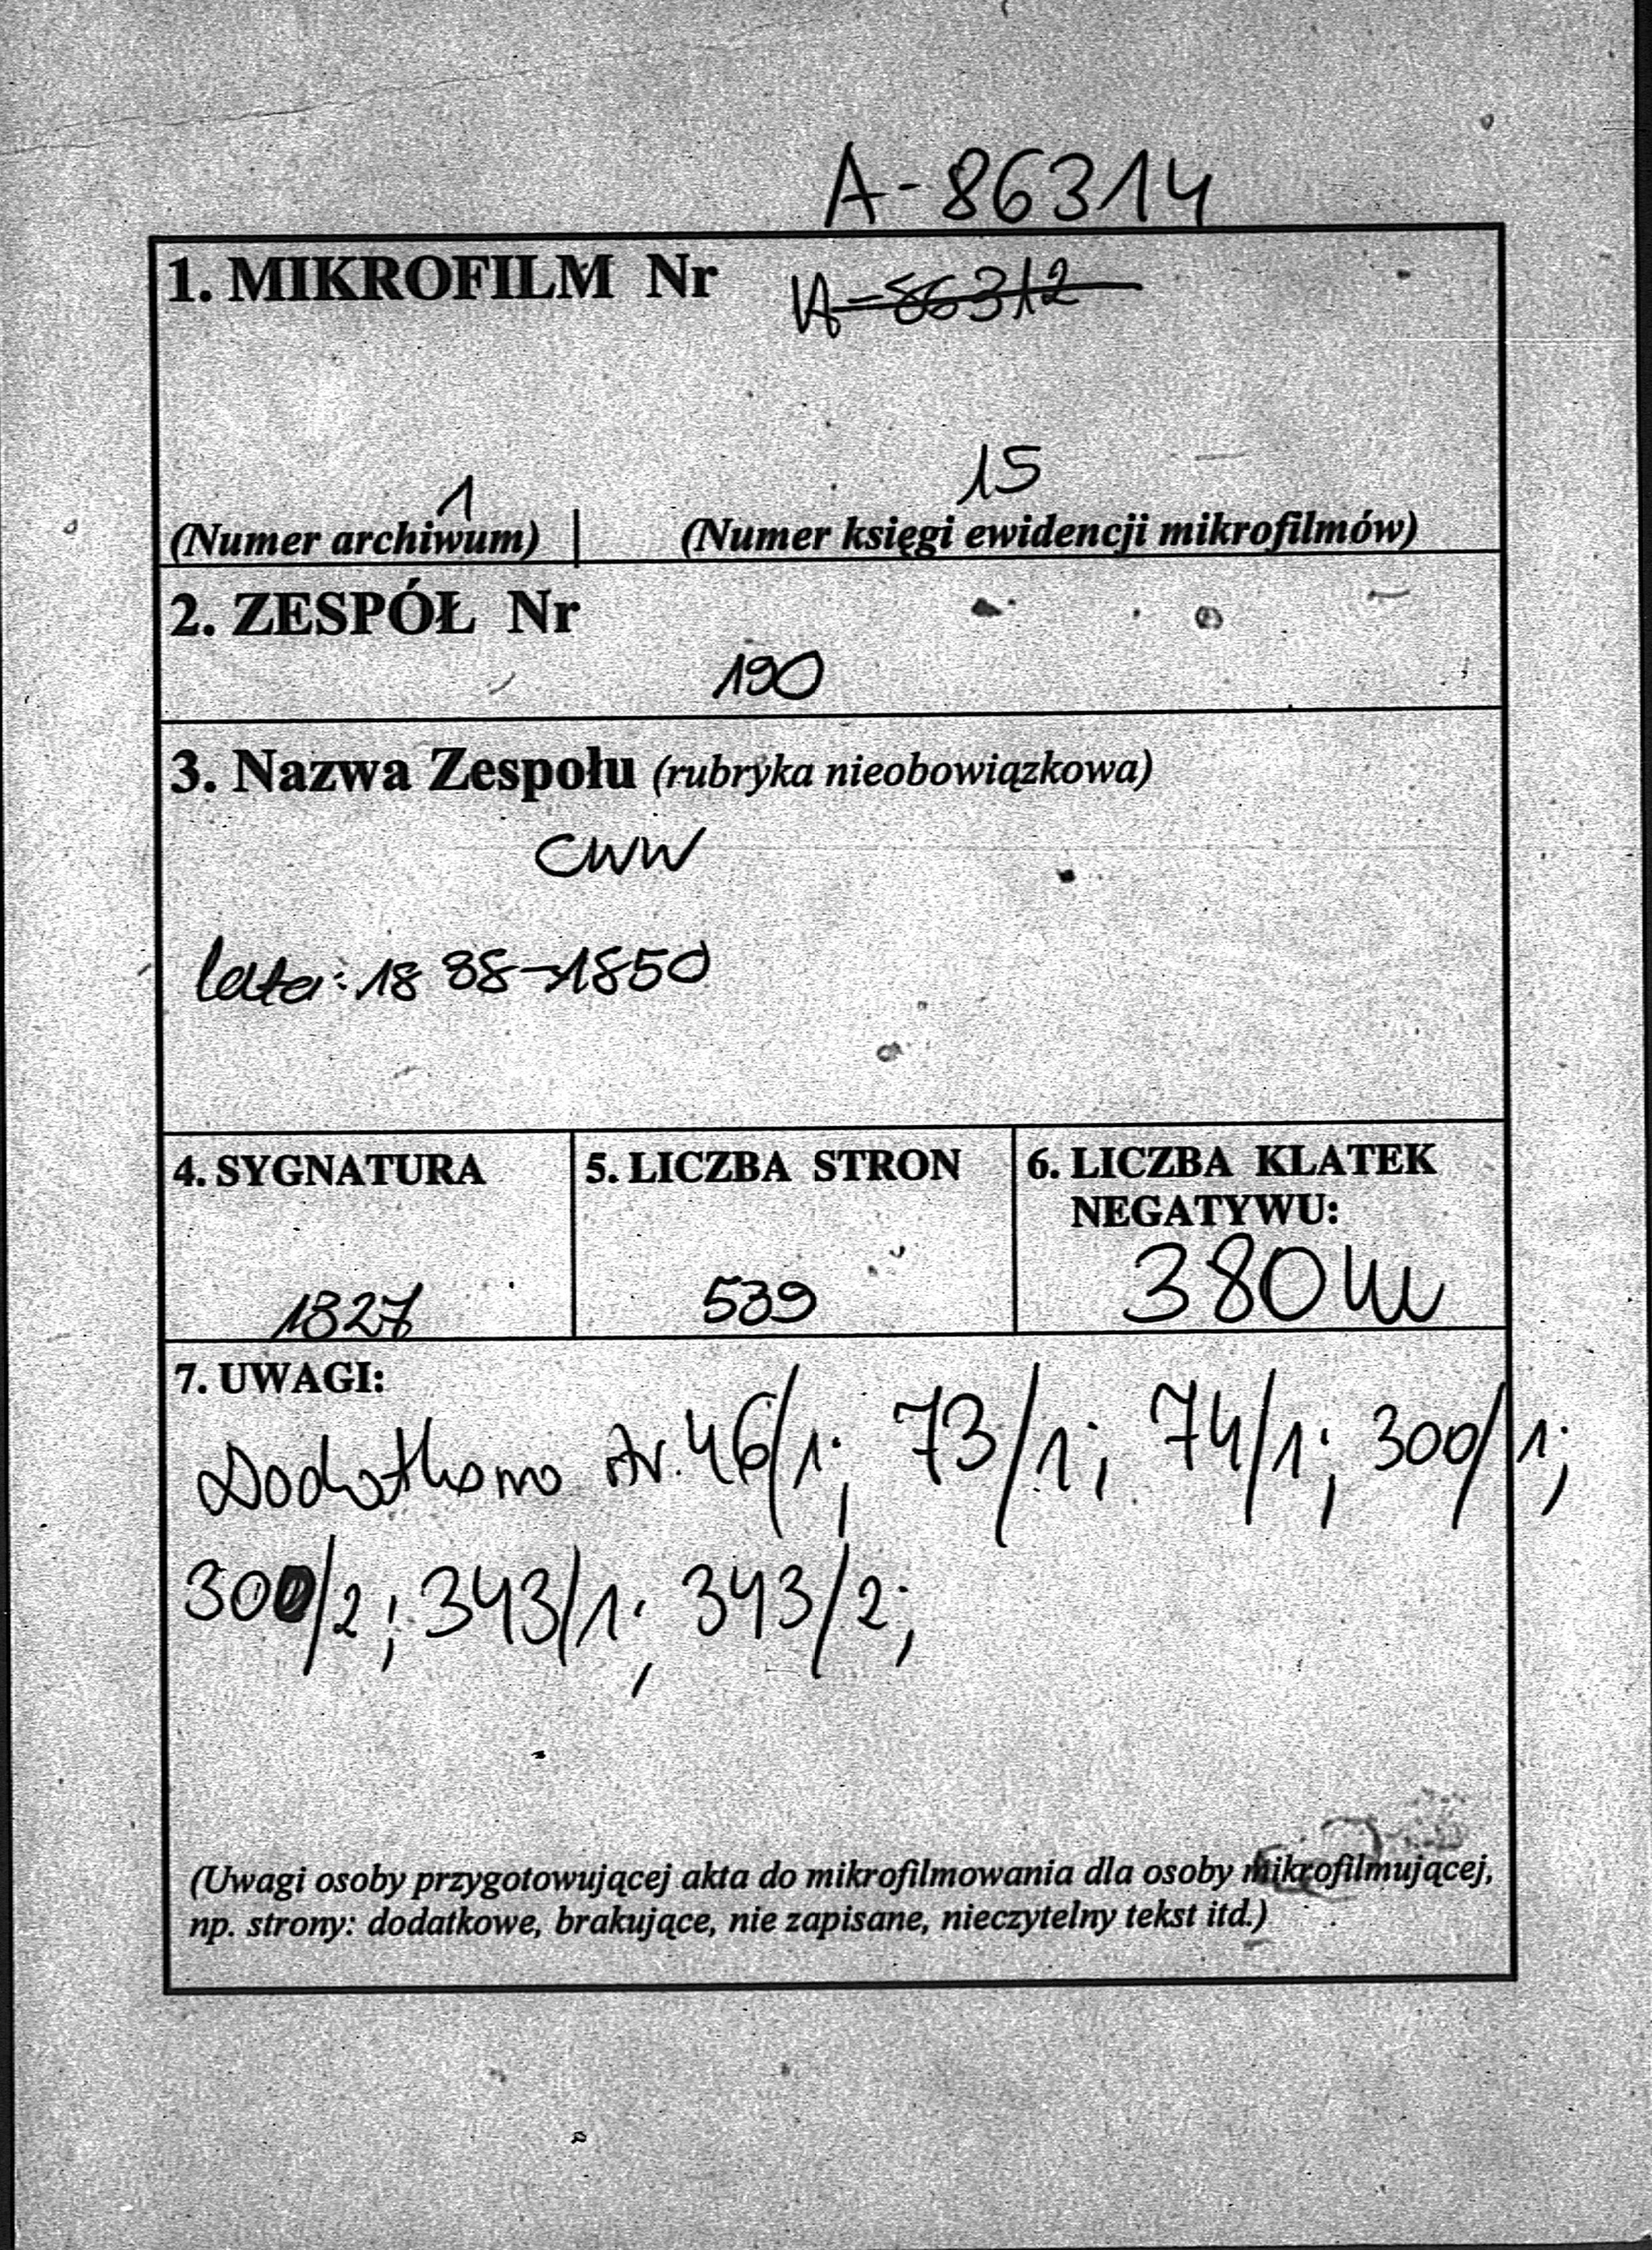 A-86314
1. MIKROFILM Nr A-86312
1 15
(Numer archiwum) | (Numer księgi ewidencji mikrofilmów)
2. ZESPÓŁ Nr
190
3. Nazwa Zespołu (rubryka nieobowiązkowa)
CWW
lata: 1838-1850
4. SYGNATURA 5. LICZBA STRON 6. LICZBA KLATEK
NEGATYWU:
1827 539 380
7. UWAGI:
Dodatkowo str. 46/1; 73/1; 74/1; 300/1;
300/2; 343/1; 343/2;
(Uwagi osoby przygotowującej akta do mikrofilmowania dla osoby mikrofilmującej,
np. strony: dodatkowe, brakujące, nie zapisane, nieczytelny tekst itd.)